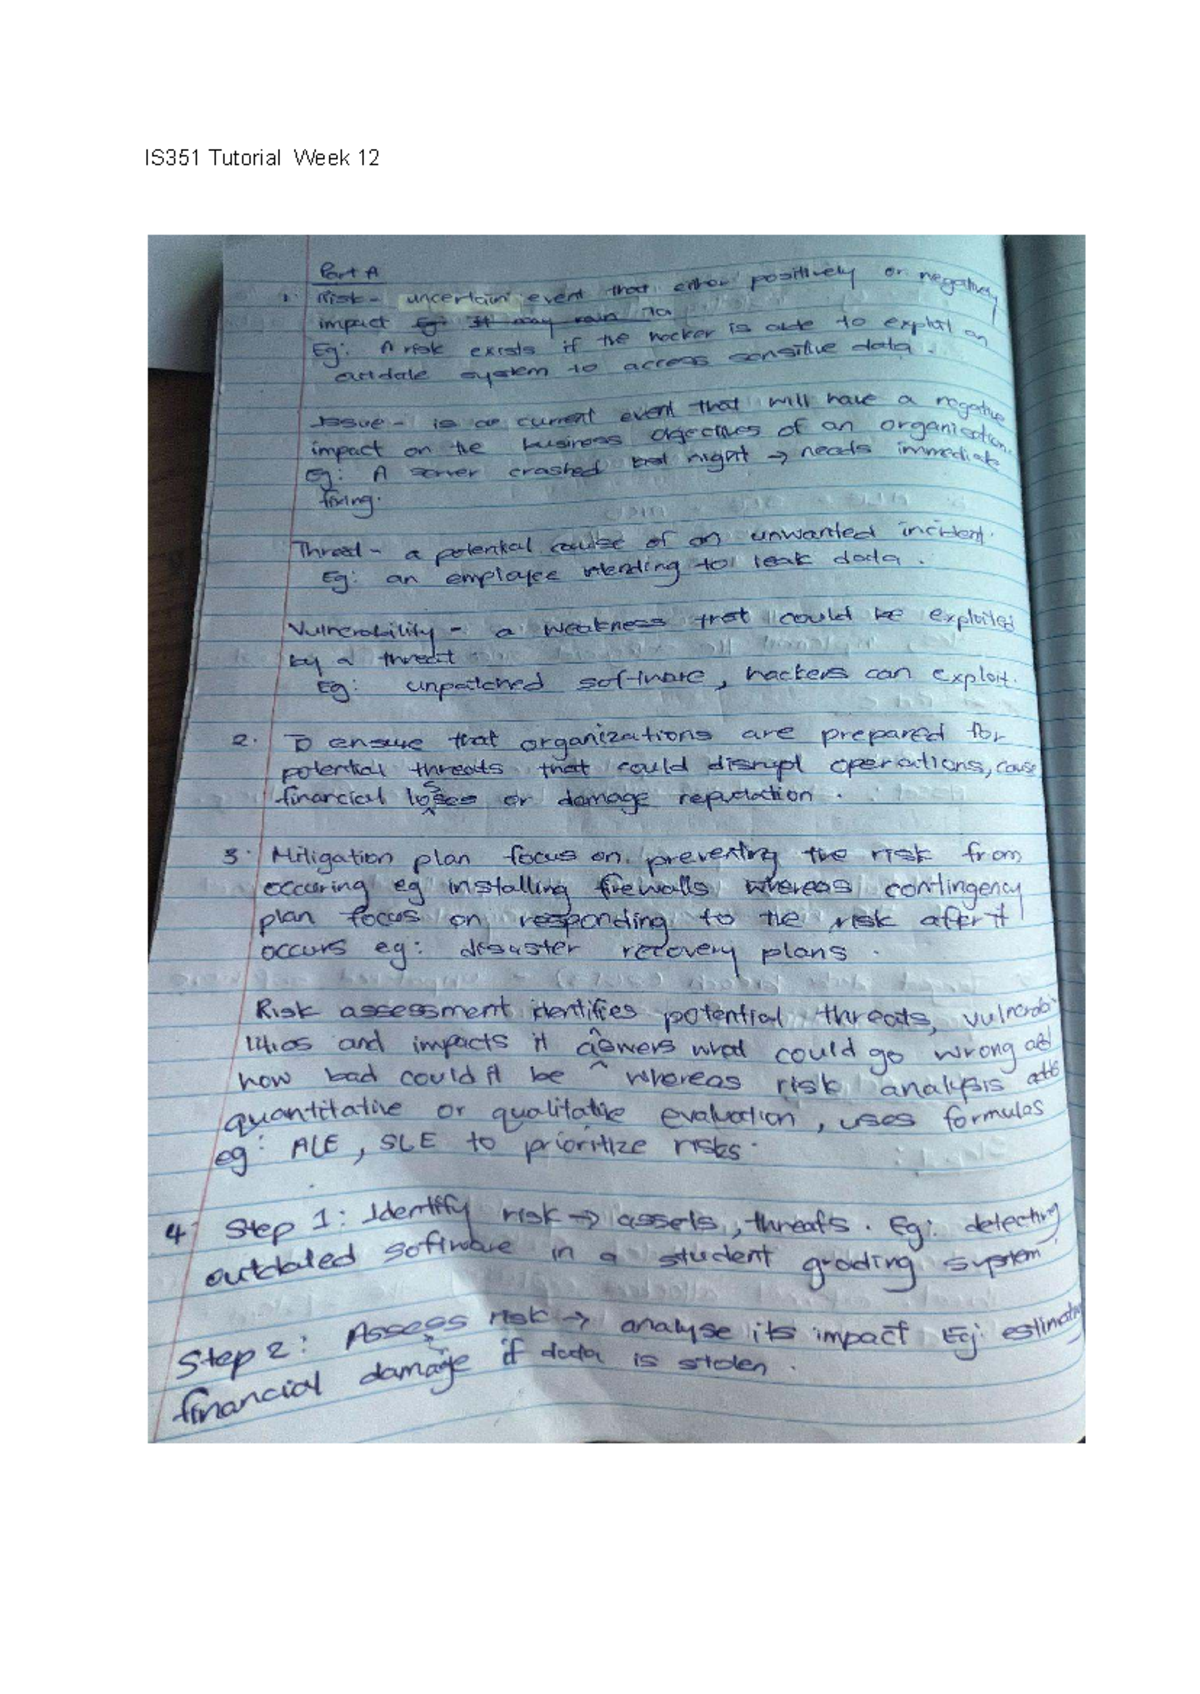 IS351 Tutorial Week 12
Part A
1. Risk - uncertain event that either positively or negatively
impact Eg: It may rain
Eg: A risk exists if the hacker is able to exploit an
outdate system to access sensitive data.
Issue - is a current event that will have a negative
impact on the business objectives of an organisation.
Eg: A server crashed last night → needs immediate
fixing.
Thread - a potential cause of an unwanted incident.
Eg: an employee intending to leak data.
Vulnerability - a weakness that could be exploited
by a threat
Eg: unpatched software, hackers can exploit.
2. To ensure that organizations are prepared for
potential threats that could disrupt operations, cause
financial losses or damage reputation.
3. Mitigation plan focus on preventing the risk from
occuring eg installing firewalls whereas contingency
plan focus on responding to the risk after it
occurs eg: disaster recovery plans.
Risk assessment identifies potential threats, vulnerabi
lities and impacts it answers what could go wrong and
how bad could it be whereas risk analysis adds
quantitative or qualitative evaluation, uses formulas
eg: ALE, SLE to prioritize risks.
4 Step 1: Identify risk → assets, threats. Eg: detecting
outdated software in a student grading system
Step 2: Assess risk → analyse its impact Eg: estimating
financial damage if data is stolen.